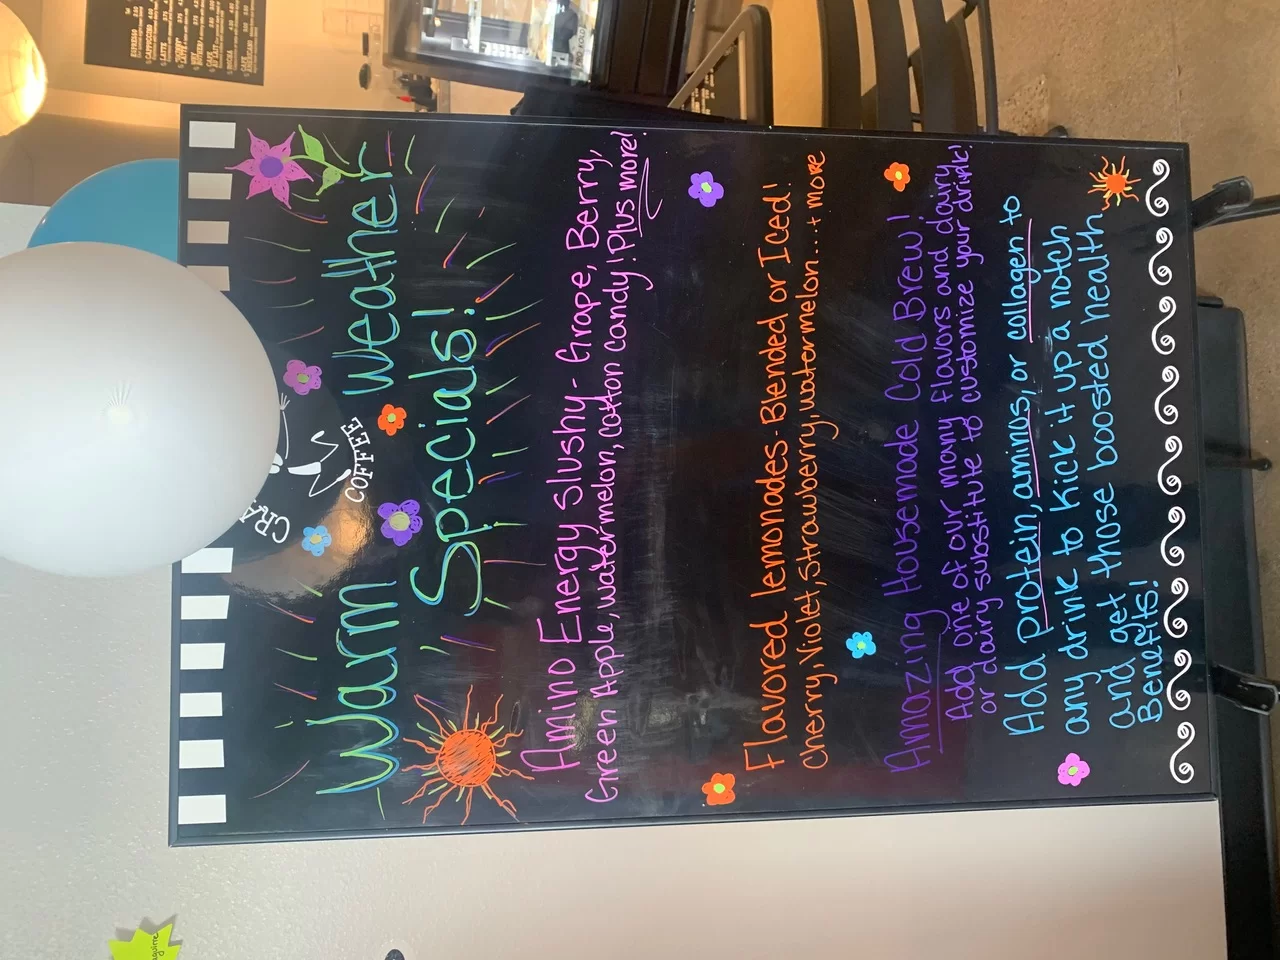 CRA
COFFEE
Warm Weather
Specials!
Amino Energy Slushy - Grape, Berry,
Green Apple, watermelon, cotton candy! Plus more!
Flavored lemonades - Blended or Iced!
Cherry, Violet, Strawberry, watermelon....+ more
Amazing Housemade Cold Brew!
Add one of our many flavors and dairy
or dairy substitute to customize your drink!
Add protein, aminos, or collagen to
any drink to Kick it up a notch
and get those boosted health
Benefits!
ESPRESSO
CAPPUCCINO
LATTE
MOCHA
CAFE
AMERICANO